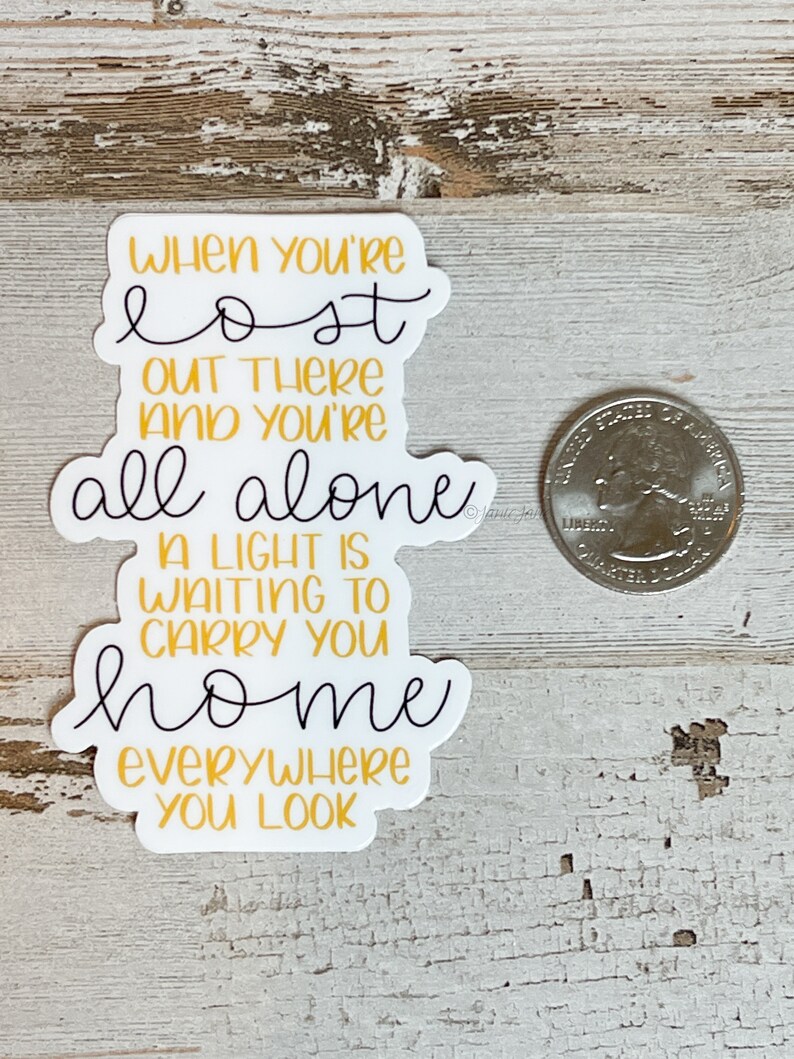 WHEN YOU'RE
lost
OUT THERE
AND YOU'RE
all alone
A LIGHT IS
WAITING TO
CARRY YOU
home
EVERYWHERE
YOU LOOK
UNITED STATES OF AMERICA
LIBERTY
IN
GOD WE
TRUST
QUARTER DOLLAR